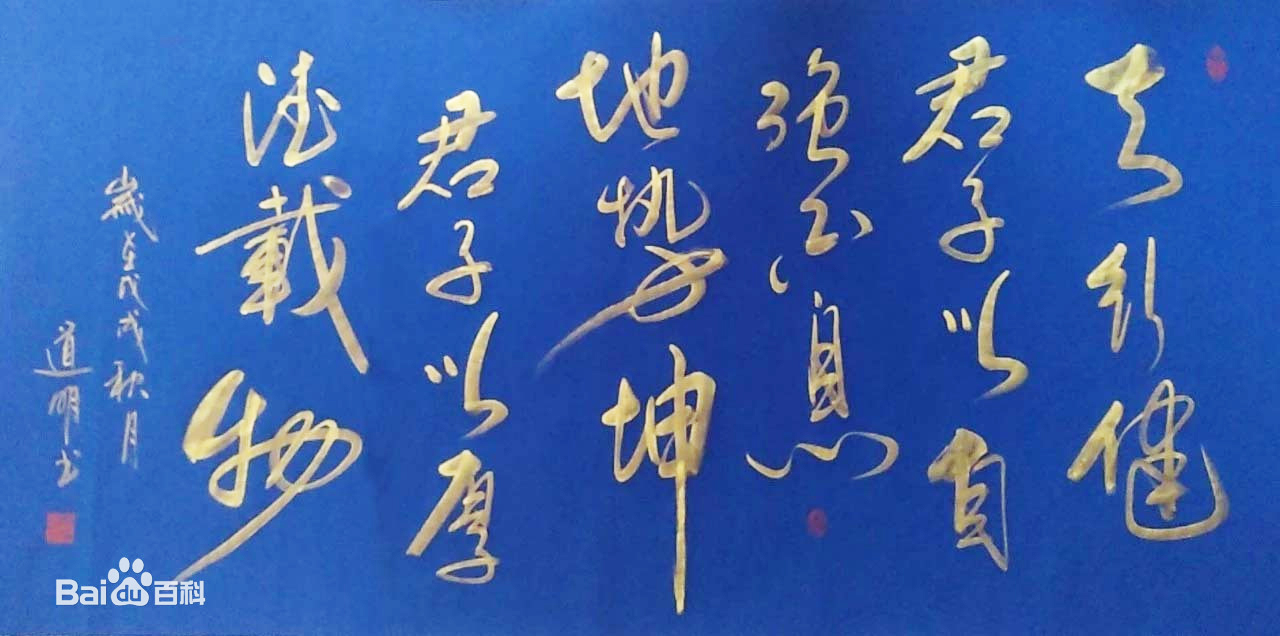 天行健
君子以自
强不息
地势坤
君子以厚
德載物
歲在戊戌秋月
道明书
Bai du 百科